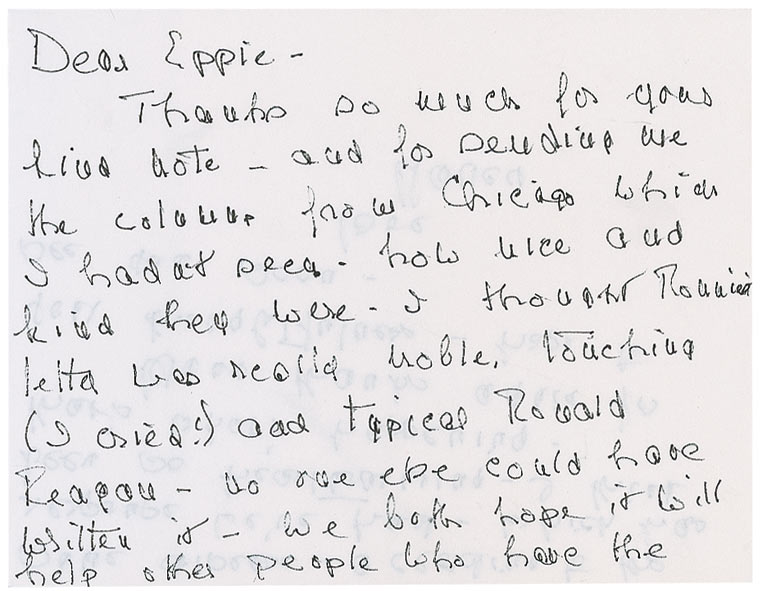 Dear Eppie -
Thanks so much for your
kind note - and for sending me
the columns from Chicago which
I hadn't seen - how nice and
kind they were - I thought Ronnie's
letter was really noble, touching
(I cried!) and typical Ronald
Reagan - no one else could have
written it - we both hope it will
help other people who have the